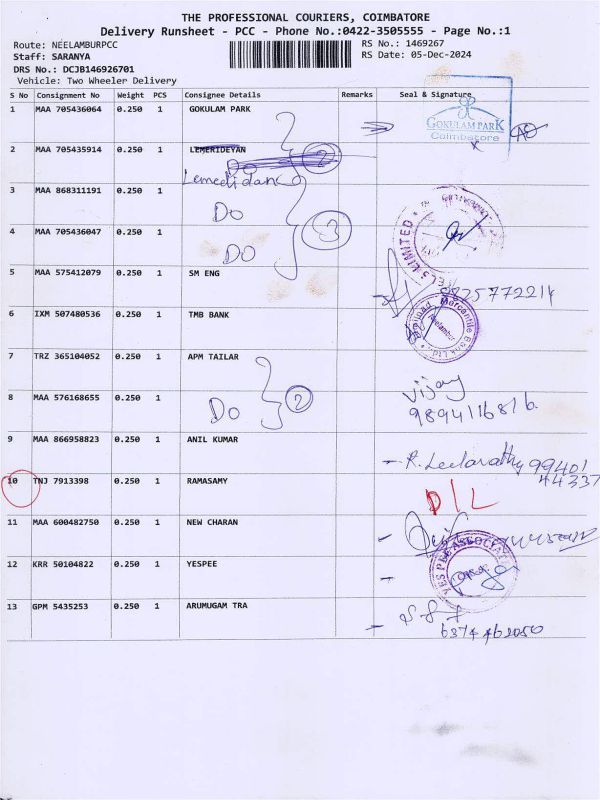 THE PROFESSIONAL COURIERS, COIMBATORE
Delivery Runsheet - PCC - Phone No.:0422-3505555 - Page No.:1
Route: NEELAMBURPCC
RS No.: 1469267
Staff: SARANYA
RS Date: 05-Dec-2024
DRS No.: DCJB146926701
Vehicle: Two Wheeler Delivery
S No Consignment No Weight PCS Consignee Details Remarks Seal & Signature
1 MAA 705436064 0.250 1 GOKULAM PARK
GOKULAM PARK
Coimbatore
2 MAA 705435914 0.250 1 LEMERIDEYAN
Do 2
Lemedidan
3 MAA 868311191 0.250 1
Do
3
LIMITED
4 MAA 705436047 0.250 1
Do
5 MAA 575412079 0.250 1 SM ENG
9225772214
6 IXM 507480536 0.250 1 TMB BANK
Tamilnad Mercantile Bank Ltd.
Neelambur
7 TRZ 365104052 0.250 1 APM TAILAR
Vijay
8 MAA 576168655 0.250 1
Do 2
9894116816.
9 MAA 866958823 0.250 1 ANIL KUMAR
- R. Leelavathy 99401
44337
10 TNJ 7913398 0.250 1 RAMASAMY
D/L
11 MAA 600482750 0.250 1 NEW CHARAN
12 KRR 50104822 0.250 1 YESPEE
YES PEE ASSOCIATE
13 GPM 5435253 0.250 1 ARUMUGAM TRA
6374462050